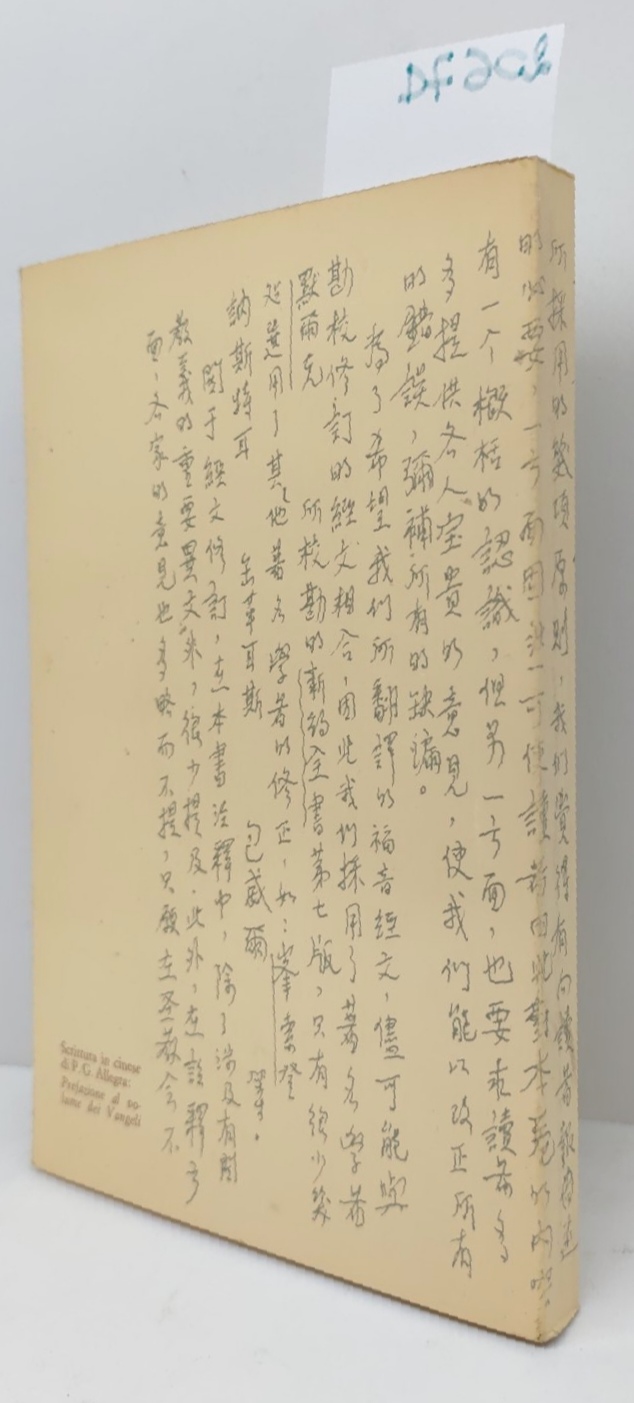 所採用的幾項原則，我們覺得有向讀者敘述
的必要，一方面因此可使讀者因此對本卷的內容
有一个概括的認識，但另一方面，也要求讀者多
多提供各人宝貴的意見，使我們能以改正所有
的錯誤，彌補所有的缺漏。
為了希望我們所翻譯的福音經文，儘可能與
勘校修訂的經文相合，因此我們採用了著名學者
默爾克 所校勘的新約全書第七版，只有很少幾
處選用了其他著名學者的修正，如：
訥斯特耳 包威爾 等。
関于經文修訂，在本書注釋中，除了涉及有関
教義的重要異文外，很少提及．此外，在註釋方
面，各家的意見也多略而不提，只願在聖教會不
Scrittura in cinese
di P. G. Allegra:
Prefazione al vo-
lume dei Vangeli